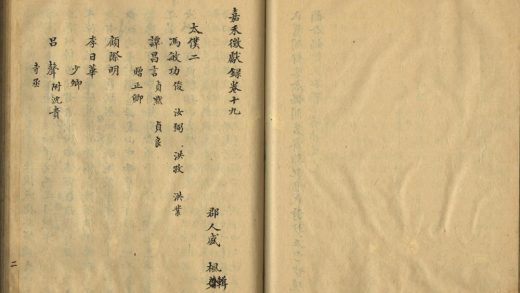 嘉禾徵獻錄卷十九
郡人盛 楓 輯
太僕二
馮敏功 俊 汝弼 洪孜 洪業
譚昌言 貞默 貞良
贈正卿
顧際明
李日華
少卿
呂 聲 附沈
寺丞
二